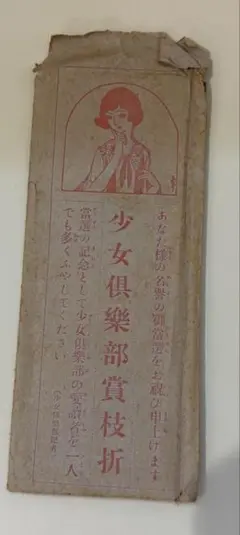 あなた様の名誉の御當選をお祝び申上げます
少女倶樂部賞枝折
當選の記念として少女倶樂部の愛讀者を一人
でも多くふやしてください